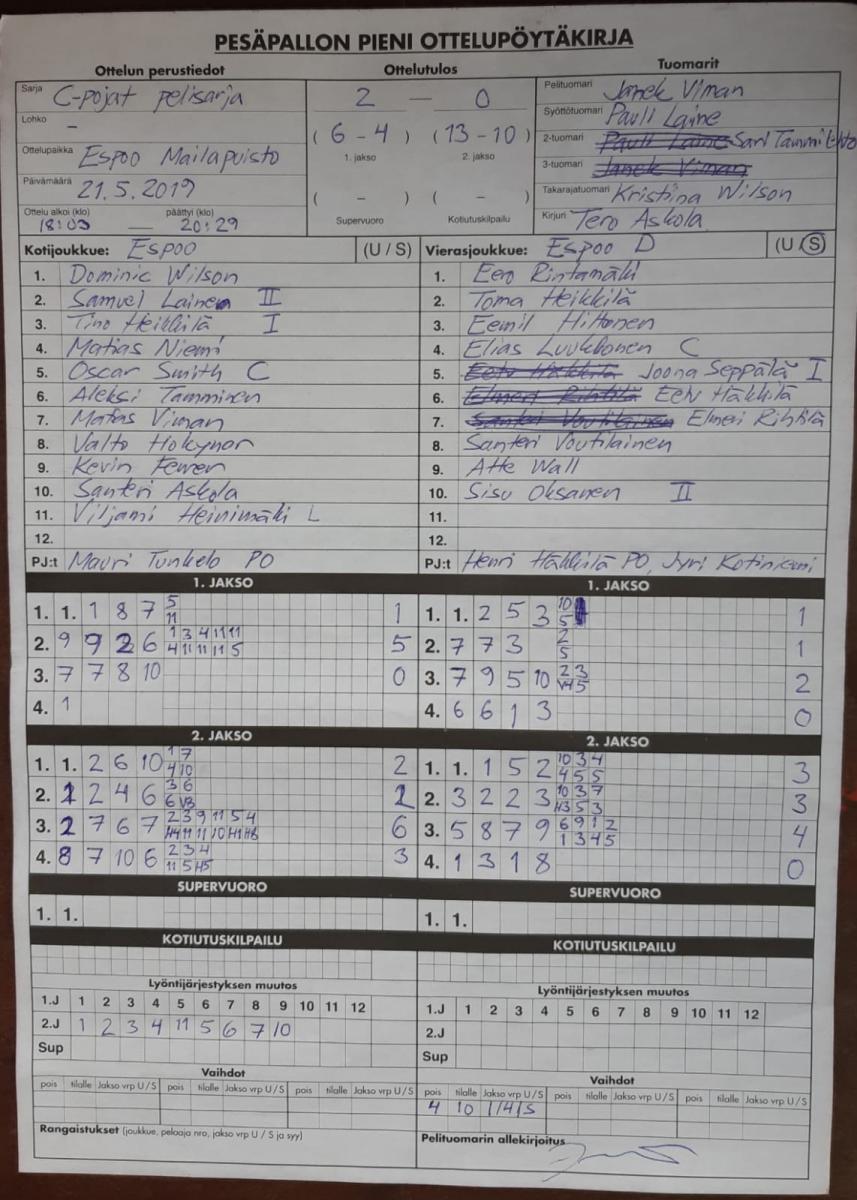 PESÄPALLON PIENI OTTELUPÖYTÄKIRJA
Ottelun perustiedot Ottelutulos Tuomarit
Sarja C-pojat pelisarja
Lohko –
Ottelupaikka Espoo Mailapuisto
Päivämäärä 21.5.2019
Ottelu alkoi (klo) päättyi (klo)
18:03 — 20:29
2 — 0
( 6 - 4 ) ( 13 - 10 )
1. jakso 2. jakso
( - ) ( - )
Supervuoro Kotiutuskilpailu
Pelituomari Janek Viman
Syöttötuomari Pauli Laine
2-tuomari Pauli Laine Sari Tammilehto
3-tuomari Janek Viman
Takarajatuomari Kristina Wilson
Kirjuri Tero Askola
Kotijoukkue: Espoo (U / S)
1. Dominic Wilson
2. Samuel Lainen II
3. Tino Heikkilä I
4. Matias Niemi
5. Oscar Smith C
6. Aleksi Tamminen
7. Matias Viman
8. Valto
9. Kevin
10. Santeri Askola
11. Viljami Heinimäki L
12.
PJ:t Mauri Tunkelo PO
Vierasjoukkue: Espoo D (U / S)
1. Eero Rintamäki
2. Toma Heikkilä
3. Eemil Hiltonen
4. Elias Luukkonen C
5. Eetu Häkkilä Joona Seppälä I
6. Elmeri Rihtilä Eetu Häkkilä
7. Santeri Voutilainen Elmeri Rihtilä
8. Santeri Voutilainen
9. Atte Wall
10. Sisu Oksanen II
11.
12.
PJ:t Henri Häkkilä PO, Jyri Kotiniemi
1. JAKSO
1. 1. 1 8 7 5 1
11
2. 9 9 2 6 1 3 4 11 11 5
4 11 11 11 5
3. 7 7 8 10 0
4. 1
2. JAKSO
1. 1. 2 6 10 1 7 2
4 10
2. 1 2 4 6 3 6 2
6 V3
3. 2 7 6 7 2 3 9 11 5 4 6
H4 11 11 10 H1 H8
4. 8 7 10 6 2 3 4 3
11 5 H5
SUPERVUORO
1. 1.
KOTIUTUSKILPAILU
Lyöntijärjestyksen muutos
1.J 1 2 3 4 5 6 7 8 9 10 11 12
2.J 1 2 3 4 11 5 6 7 10
Sup
Vaihdot
pois tilalle Jakso vrp U / S pois tilalle Jakso vrp U / S pois tilalle Jakso vrp U / S
Rangaistukset (joukkue, pelaaja nro, jakso vrp U / S ja syy)
1. JAKSO
1. 1. 2 5 3 10 1
5
2. 7 7 3 2 1
5
3. 7 9 5 10 2 3 2
V4 5
4. 6 6 1 3 0
2. JAKSO
1. 1. 1 5 2 10 3 4 3
4 5 5
2. 3 2 2 3 10 3 7 3
H3 5 3
3. 5 8 7 9 6 9 1 2 4
1 3 4 5
4. 1 3 1 8 0
SUPERVUORO
1. 1.
KOTIUTUSKILPAILU
Lyöntijärjestyksen muutos
1.J 1 2 3 4 5 6 7 8 9 10 11 12
2.J
Sup
Vaihdot
pois tilalle Jakso vrp U / S pois tilalle Jakso vrp U / S pois tilalle Jakso vrp U / S
4 10 1/4/S
Pelituomarin allekirjoitus